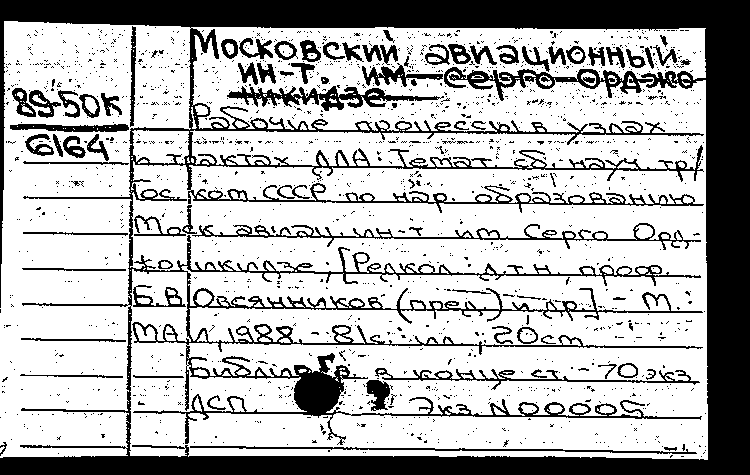 Московский авиационный
ин-т. им. Серго Орджо
никидзе.
89-50К
6164
Рабочие процессы в узлах
и трактах ДЛА: Темат. сб. науч. тр/
Гос. ком. СССР по нар. образованию
Моск. авиац. ин-т им. Серго Орд-
жоникидзе; [Редкол.: д.т.н., проф.
Б.В. Овсянников (пред.) и др.] - М.:
МАИ, 1988. - 81с.: ил.; 20см
Библиогр. в конце ст. - 70 экз
ДСП. Экз. N00005